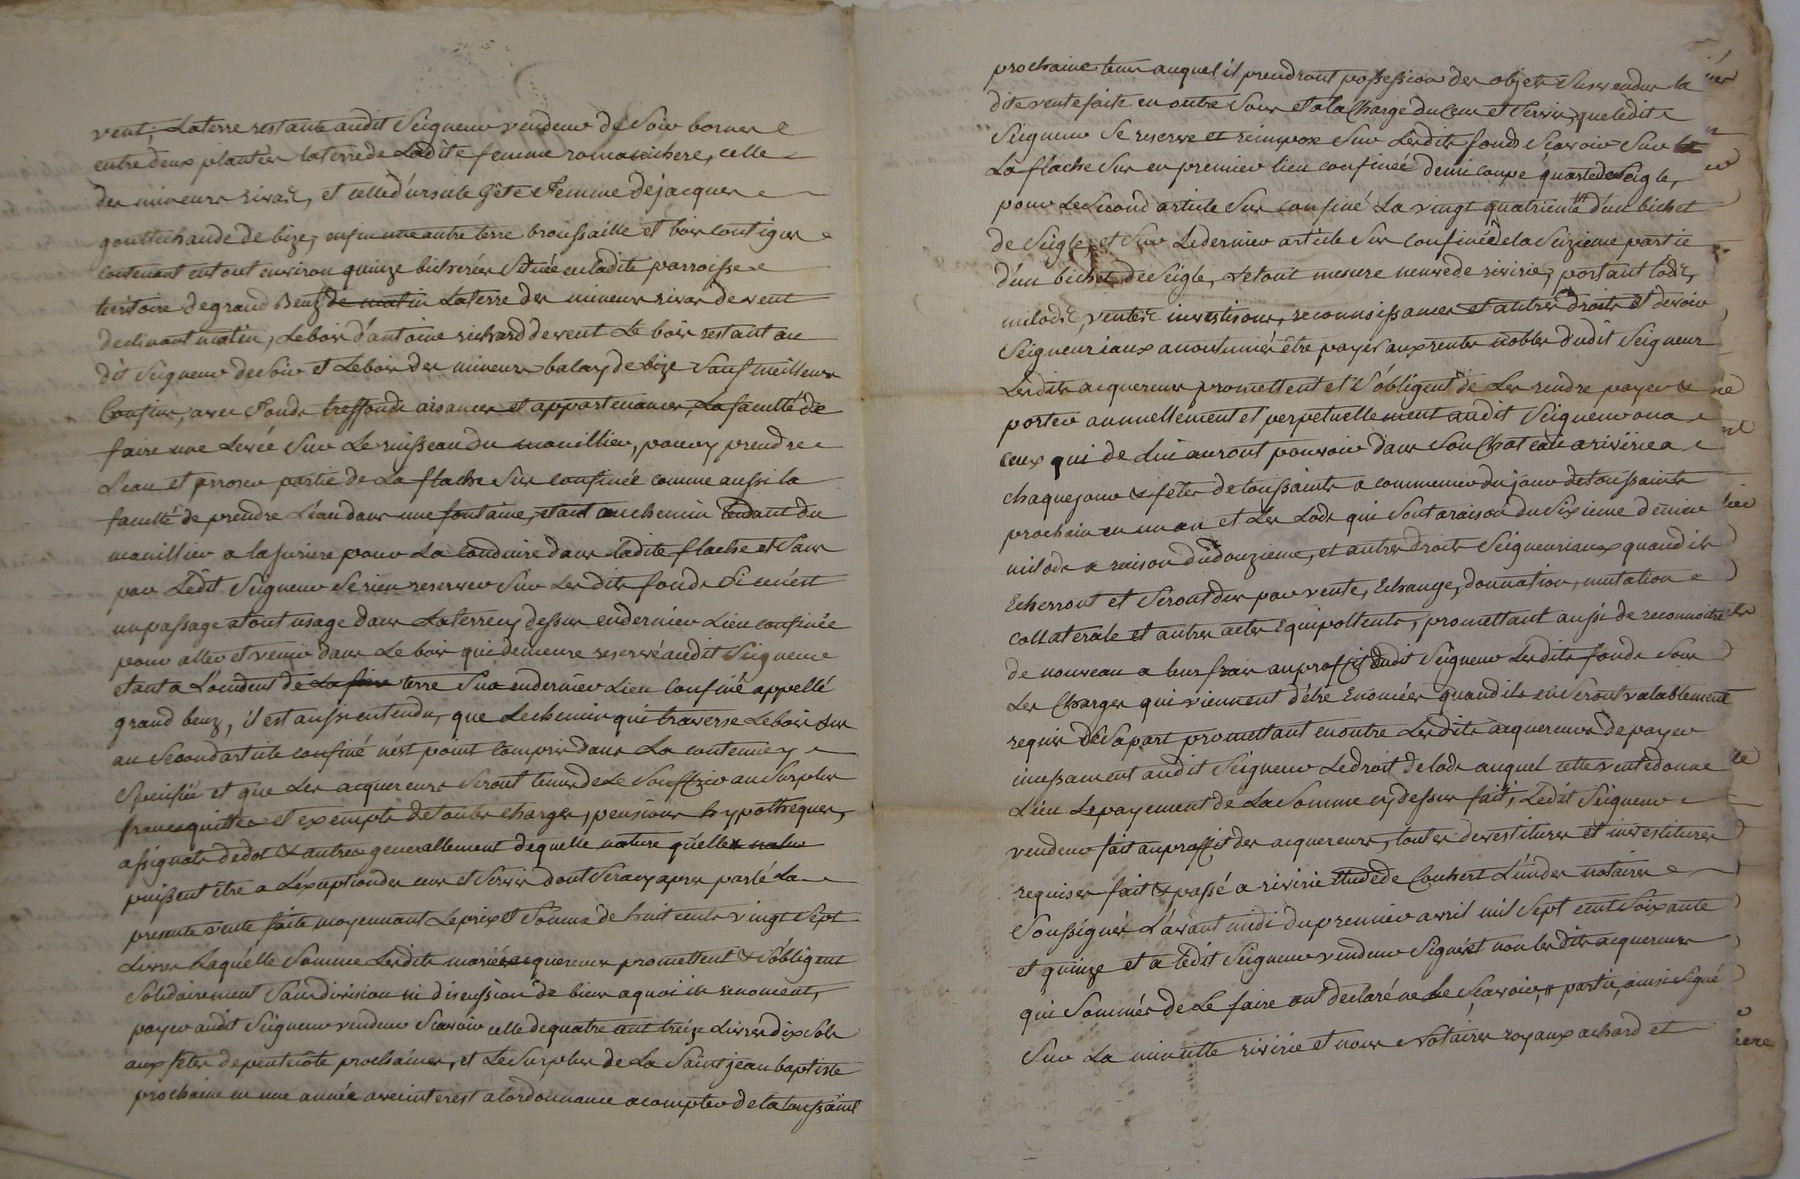 vent, Laterre restante audit Seigneur vendeur de Soir bornes
entre deux plantées laterre de Ladite femme romarichere, celle
des mineurs rivat, et celle d'ursule Gête Femme de jacques
gouttechaude de bize, enfin une autre terre broussaille et bois contigus
contenant en tout environ quinze bicherées Située en ladite parroisse
territoire de grand Beuz de matin Laterre des mineurs rivas de vent
declinant matin, Lebois d'antoine richard de vent Le bois restant au
dit Seigneur de Soir et Lebois des mineurs balay de bize Sauf meilleurs
Confins, avec Fonds treffonds aisances et appartenances, La faculté de
faire une Levée Sur Le ruisseau du mouillier, pour y prendre
L'eau et arroser partie de La flache Sus confinée comme aussi la
faculté de prendre L'eau dans une fontaine, etant au chemin tendant du
mouillier a la juriere pour La conduire dans ladite flache et Sans
par Ledit Seigneur Se rien reserver Sur Lesdits fonds Si ce n'est
un passage a tout usage dans Laterre cy dessus en dernier Lieu confinée
pour aller et venir dans Le bois qui demeure reservé audit Seigneur
etant a L'occident de terre Sus en dernier Lieu Confiné appellé
grand beuz, il est aussi entendu, que Lechemin qui traverse Lebois Sus
au Second article confiné n'est point Compris dans La contenue y
Specifiée et que Les acquereurs Seront tenus de Le Souffrir au Surplus
francs quittes et exempts de toutes charges, pensions hypotheques,
assignats de dot & autres generallement de quelle nature qu'elles
puissent être a L'exception des cens et Servis dont Sera cy apres parlé La
presente vente faite moyennant Leprix et Somme de huit cents vingt Sept
Livres Laquelle Somme Lesdits mariés acquereurs promettent & S'obligent
Solidairement Sans division ni discussion de biens a quoi ils renoncent,
payer audit Seigneur vendeur Scavoir celle de quatre cent treize Livres dix Sols
aux fêtes de pentecôte prochaines, et Le Surplus de La Saint jean baptiste
prochaine en une année avec interest a l'ordonnance a compter de la toussaint
prochaine tems auquel il prendront possession des objets Sus vendus la
dite vente faite en outre Sous et a la Charge du Cens et Servis, que ledit
Seigneur Se reserve et reimpose Sur Lesdits fonds Scavoir Sur
La flache Sus en premier lieu confinée demi coupe quarte de Seigle,
pour Le Second article Sus confiné La vingt quatrieme d'un bichet
de Seigle, et Sur Le dernier article Sus Confiné de la Seizieme partie
d'un bichet de Seigle, Le tout mesure neuve de rivirie, portant lods,
milods, ventes investisons, reconnoissances et autres droits et devoirs
Seigneuriaux accoutumés être payés aux rentes nobles dudit Seigneur
Lesdits acquereurs promettent et S'obligent de Les rendre payer &
porter annuellement et perpetuellement audit Seigneur ou a
ceux qui de Lui auront pouvoir dans Son Chateau a rivirie a
chaque jour & fêtes de toussaints a commencer du jour de toussaints
prochain en un an et Les Lods qui Sont a raison du Sixieme denier
milods a raison du douzieme, et autres Droits Seigneuriaux quand ils
Echerront et Seront dus par vente, Echange, donnation, mutation
collaterale et autres actes Equipollents, promettant aussi de reconnoitre
de nouveau a leurs frais au proffit dudit Seigneur Lesdits fonds Sous
Les Charges qui viennent d'être Enoncées quand ils en Seront valablement
requis de Sa part promettant en outre Lesdits acquereurs de payer
incessament audit Seigneur Le droit de lods auquel cette vente donne
Lieu Le payement de La Somme cy dessus fait, Ledit Seigneur
vendeur fait au proffit des acquereurs, toutes devestitures et investitures
requises fait & passé a rivirie Etude de Conhert L'un des notaires
Soussignés L'avant midi du premier avril mil Sept cent Soixante
et quinze et a Ledit Seigneur vendeur Signé et non lesdits acquereurs
qui Sommés de Le faire ont declaré ne Le Scavoir, partie, ainsi Signé
Sur La minutte rivirie et nous Notaires royaux achard et